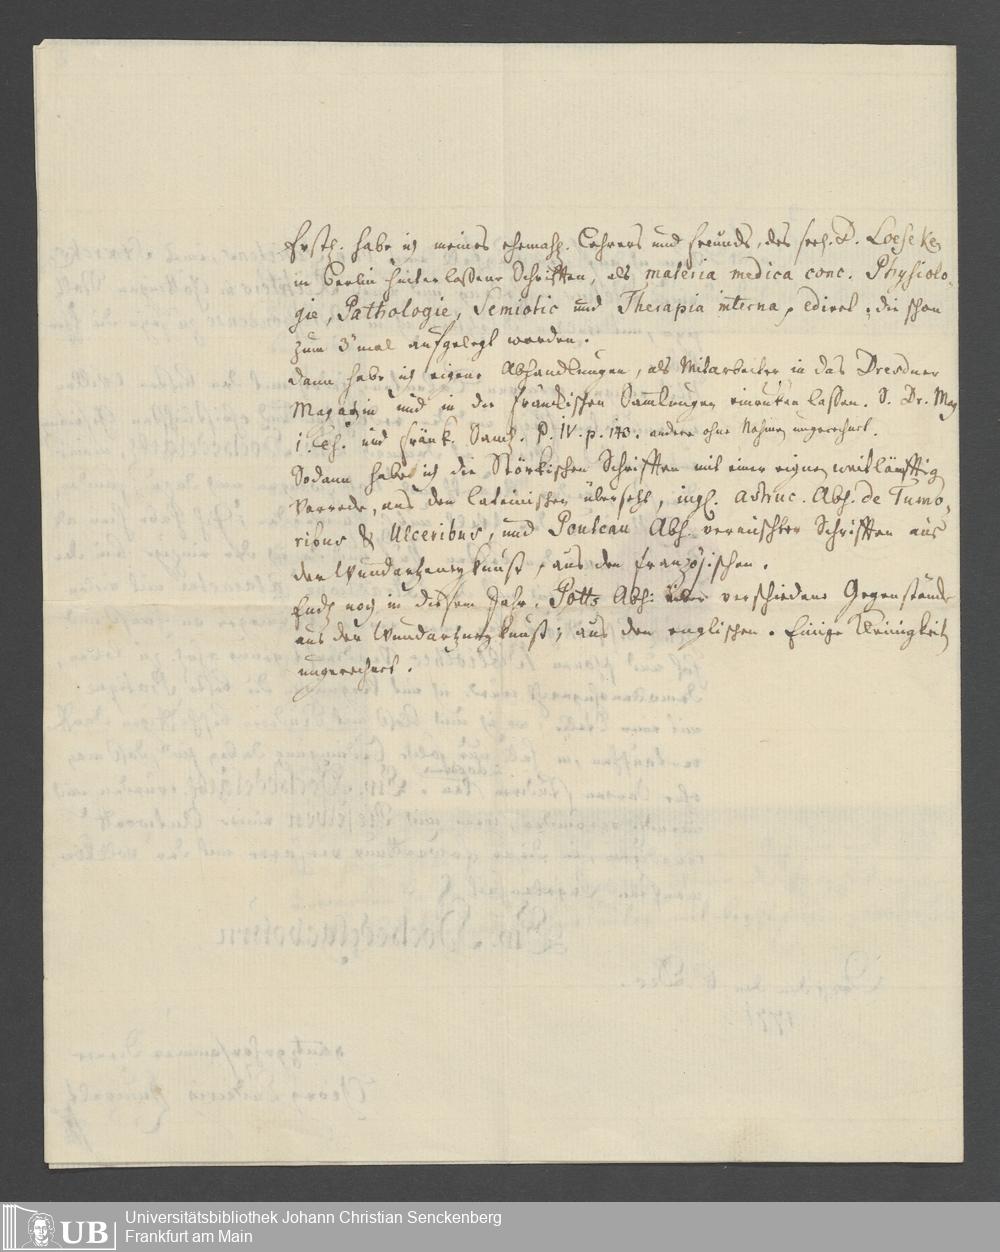 Erstl. habe ich meines ehemahl. Lehrers und freunds, des seel. D. Loeseken
in Berlin hinterlaßene Schrifften, als materia medica conc. Physiolo-
gie, Pathologie, Semiotic und Therapia interna, edirt, die schon
zum 3 mal aufgelegt worden.
Dann habe ich eigene Abhandlungen, als Mitarbeiter in das Dresdner
Magazin und in die fränkischen Sammlungen einrüken lassen. S. Dr. Mag
1. Th. und fränk. Saml. P. IV. p. 173. andere ohne Nahmen ungerechnet.
Sodann habe ich die Störkischen Schrifften mit einer eignen weitläufftig
Vorrede, aus dem lateinischen übersetzt, ingl. Astruc. Abh. de Tumo-
ribus & Ulceribus, und Pouteau Abh. vermischter Schrifften aus
der Wundartzeneykunst, aus dem französischen.
Endl. noch in diesem Jahr, Potts Abh: über verschiedene Gegenstände
aus der Wundartzneykunst; aus dem englischen. Einige Kleinigkeit
ungerechnet.
UB
Universitätsbibliothek Johann Christian Senckenberg
Frankfurt am Main